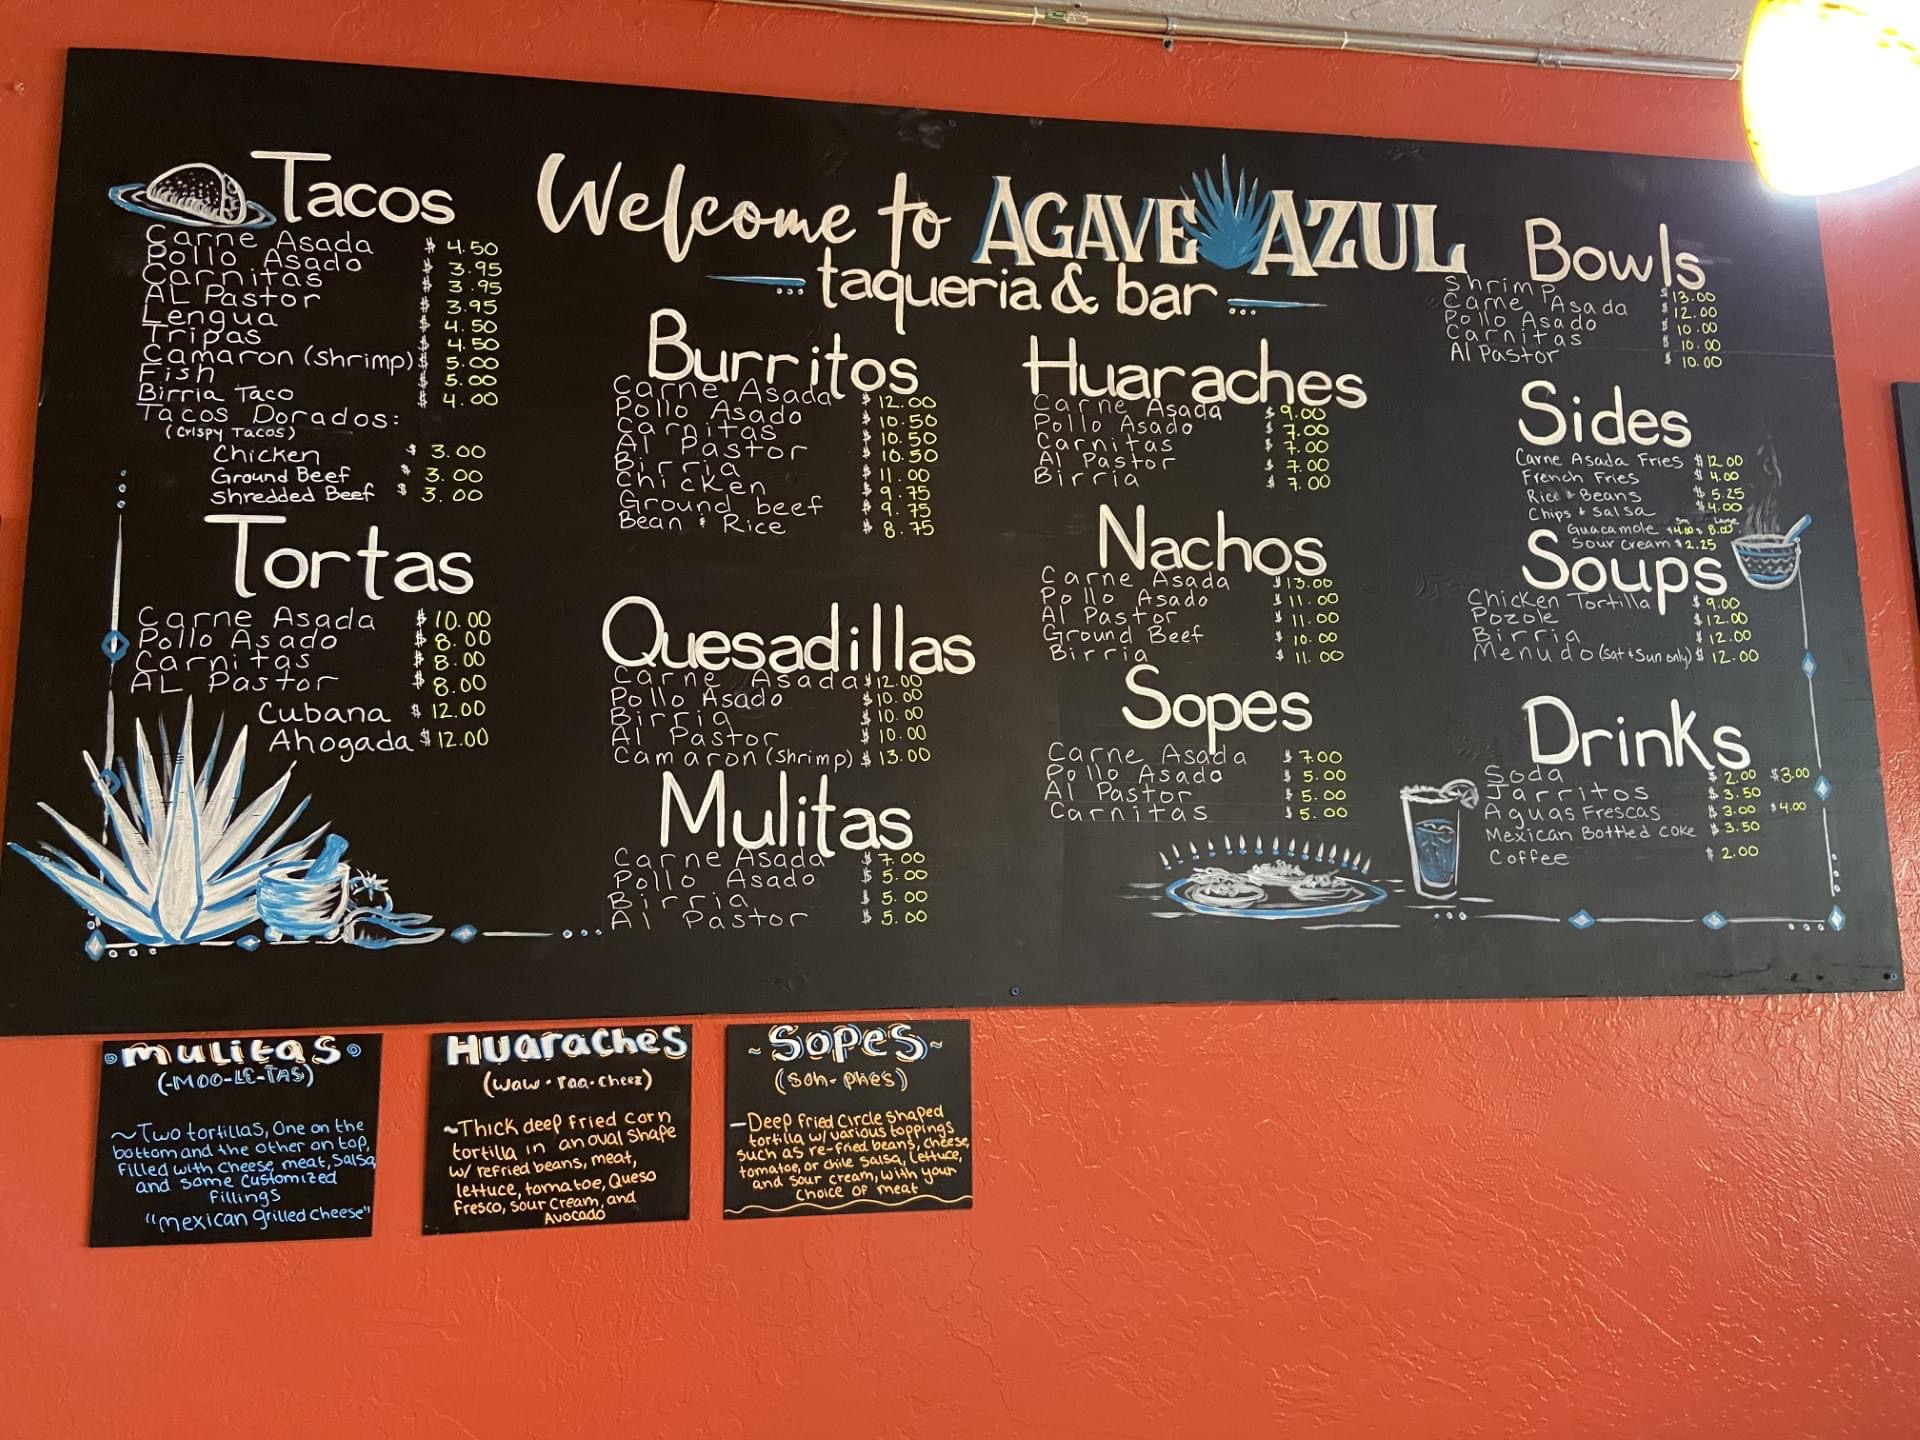 Welcome to AGAVE AZUL
taqueria & bar
Tacos
Carne Asada $ 4.50
Pollo Asado $ 3.95
Carnitas $ 3.95
AL Pastor $ 3.95
Lengua $ 4.50
Tripas $ 4.50
Camaron (shrimp) $ 5.00
Fish $ 5.00
Birria Taco $ 4.00
Tacos Dorados:
(Crispy Tacos)
Chicken $ 3.00
Ground Beef $ 3.00
Shredded Beef $ 3.00
Tortas
Carne Asada $ 10.00
Pollo Asado $ 8.00
Carnitas $ 8.00
AL Pastor $ 8.00
Cubana $ 12.00
Ahogada $ 12.00
Burritos
Carne Asada $ 12.00
Pollo Asado $ 10.50
Carnitas $ 10.50
Al Pastor $ 10.50
Birria $ 11.00
Chicken $ 9.75
Ground beef $ 9.75
Bean & Rice $ 8.75
Quesadillas
Carne Asada $ 12.00
Pollo Asado $ 10.00
Birria $ 10.00
Al Pastor $ 10.00
Camaron (shrimp) $ 13.00
Mulitas
Carne Asada $ 7.00
Pollo Asado $ 5.00
Birria $ 5.00
Al Pastor $ 5.00
Huaraches
Carne Asada $ 9.00
Pollo Asado $ 7.00
Carnitas $ 7.00
Al Pastor $ 7.00
Birria $ 7.00
Nachos
Carne Asada $ 13.00
Pollo Asado $ 11.00
Al Pastor $ 11.00
Ground Beef $ 10.00
Birria $ 11.00
Sopes
Carne Asada $ 7.00
Pollo Asado $ 5.00
Al Pastor $ 5.00
Carnitas $ 5.00
Bowls
Shrimp $ 13.00
Carne Asada $ 12.00
Pollo Asado $ 10.00
Carnitas $ 10.00
Al Pastor $ 10.00
Sides
Carne Asada Fries $ 12.00
French Fries $ 4.00
Rice & Beans $ 5.25
Chips & Salsa $ 4.00
Sm Large
Guacamole $4.00 $ 8.00
Sour Cream $ 2.25
Soups
Chicken Tortilla $ 9.00
Pozole $ 12.00
Birria $ 12.00
Menudo (Sat & Sun only) $ 12.00
Drinks
Soda $ 2.00 $3.00
Jarritos $ 3.50
Aguas Frescas $ 3.00 $4.00
Mexican Bottled Coke $ 3.50
Coffee $ 2.00
Mulitas
(-MOO-LE-TAS)
~Two tortillas, One on the
bottom and the other on top,
Filled with cheese, meat, Salsa,
and some customized
Fillings
"mexican grilled cheese"
Huaraches
(waw-raa-cheez)
~Thick deep fried corn
tortilla in an oval shape
w/ refried beans, meat,
lettuce, tomatoe, Queso
Fresco, sour cream, and
Avocado
~Sopes~
(soh-phes)
-Deep fried circle shaped
tortilla w/ various toppings
such as re-fried beans, cheese,
tomatoe, or chile salsa, lettuce,
and sour cream, with your
choice of meat